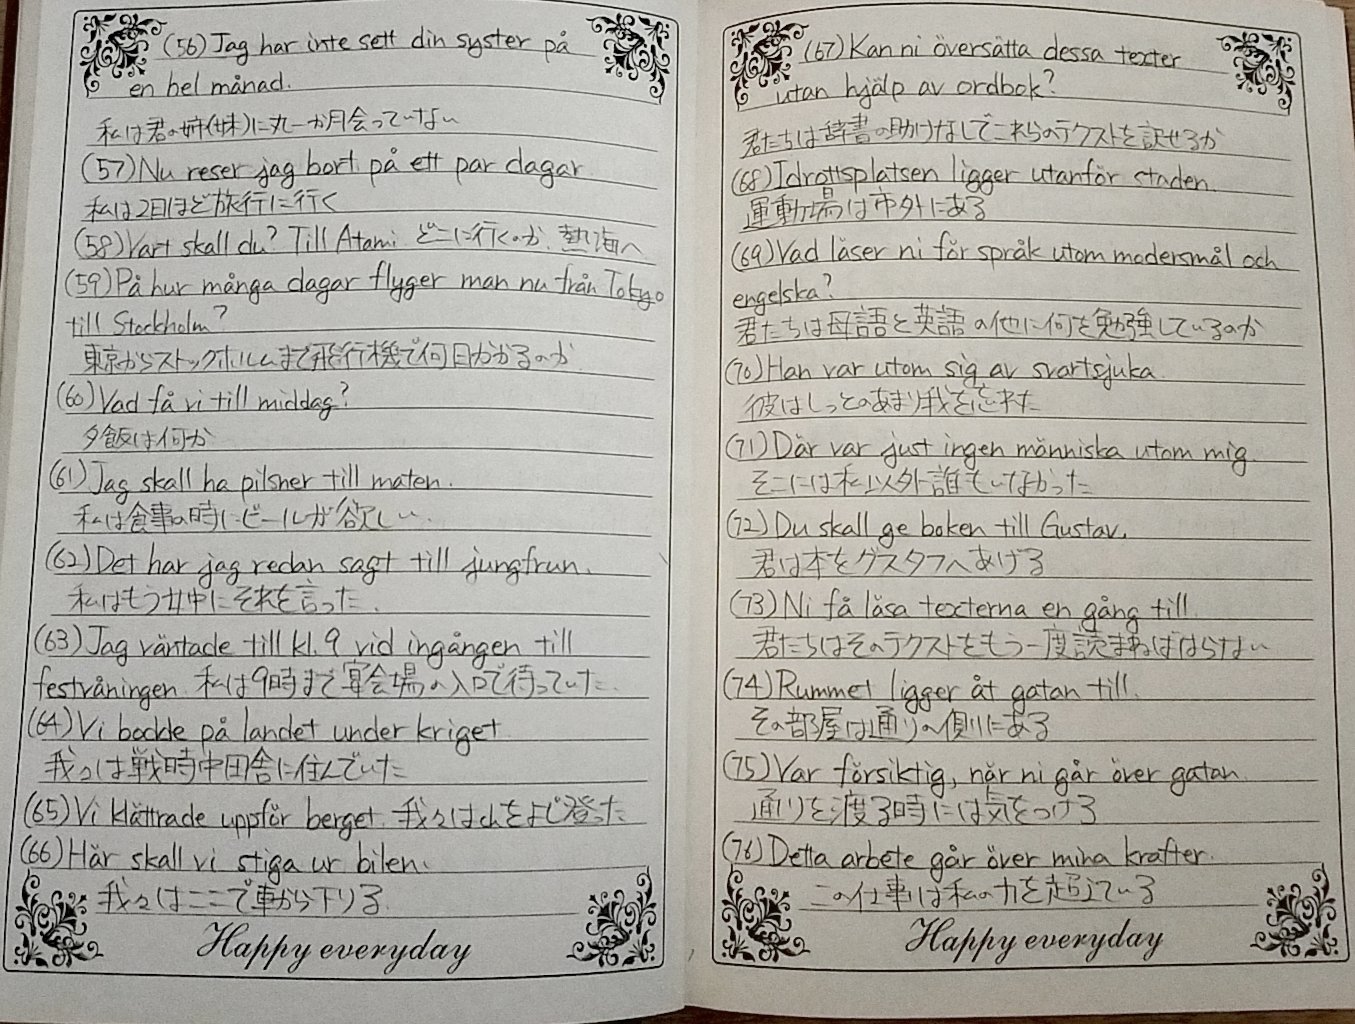 (56) Jag har inte sett din syster på
en hel månad.
私は君の姉(妹)に丸一か月会っていない
(57) Nu reser jag bort på ett par dagar
私は2日ほど旅行に行く
(58) Vart skall du? Till Atami どこに行くのか. 熱海へ
(59) På hur många dagar flyger man nu från Tokyo
till Stockholm?
東京からストックホルムまで飛行機で何日かかるのか
(60) Vad få vi till middag?
夕飯は何か
(61) Jag skall ha pilsner till maten.
私は食事の時にビールが欲しい.
(62) Det har jag redan sagt till jungfrun.
私はもう女中にそれを言った.
(63) Jag väntade till kl. 9 vid ingången till
festvåningen. 私は9時まで宴会場の入口で待っていた.
(64) Vi bodde på landet under kriget
我々は戦時中田舎に住んでいた
(65) Vi klättrade uppför berget. 我々は山をよじ登った
(66) Här skall vi stiga ur bilen.
我々はここで車から下りる.
Happy everyday
(67) Kan ni översätta dessa texter
utan hjälp av ordbok?
君たちは辞書の助けなしでこれらのテクストを訳せるか
(68) Idrottsplatsen ligger utanför staden.
運動場は市外にある
(69) Vad läser ni för språk utom modersmål och
engelska?
君たちは母語と英語の他に何を勉強しているのか
(70) Han var utom sig av svartsjuka.
彼はしっとのあまり我を忘れた
(71) Där var just ingen människa utom mig.
そこには私以外誰もいなかった
(72) Du skall ge boken till Gustav.
君は本をグスタフへあげる
(73) Ni få läsa texterna en gång till.
君たちはそのテクストをもう一度読まねばならない
(74) Rummet ligger åt gatan till.
その部屋は通りの側にある
(75) Var försiktig, när ni går över gatan.
通りを渡る時には気をつける
(76) Detta arbete går över mina krafter.
この仕事は私の力を超えている
Happy everyday